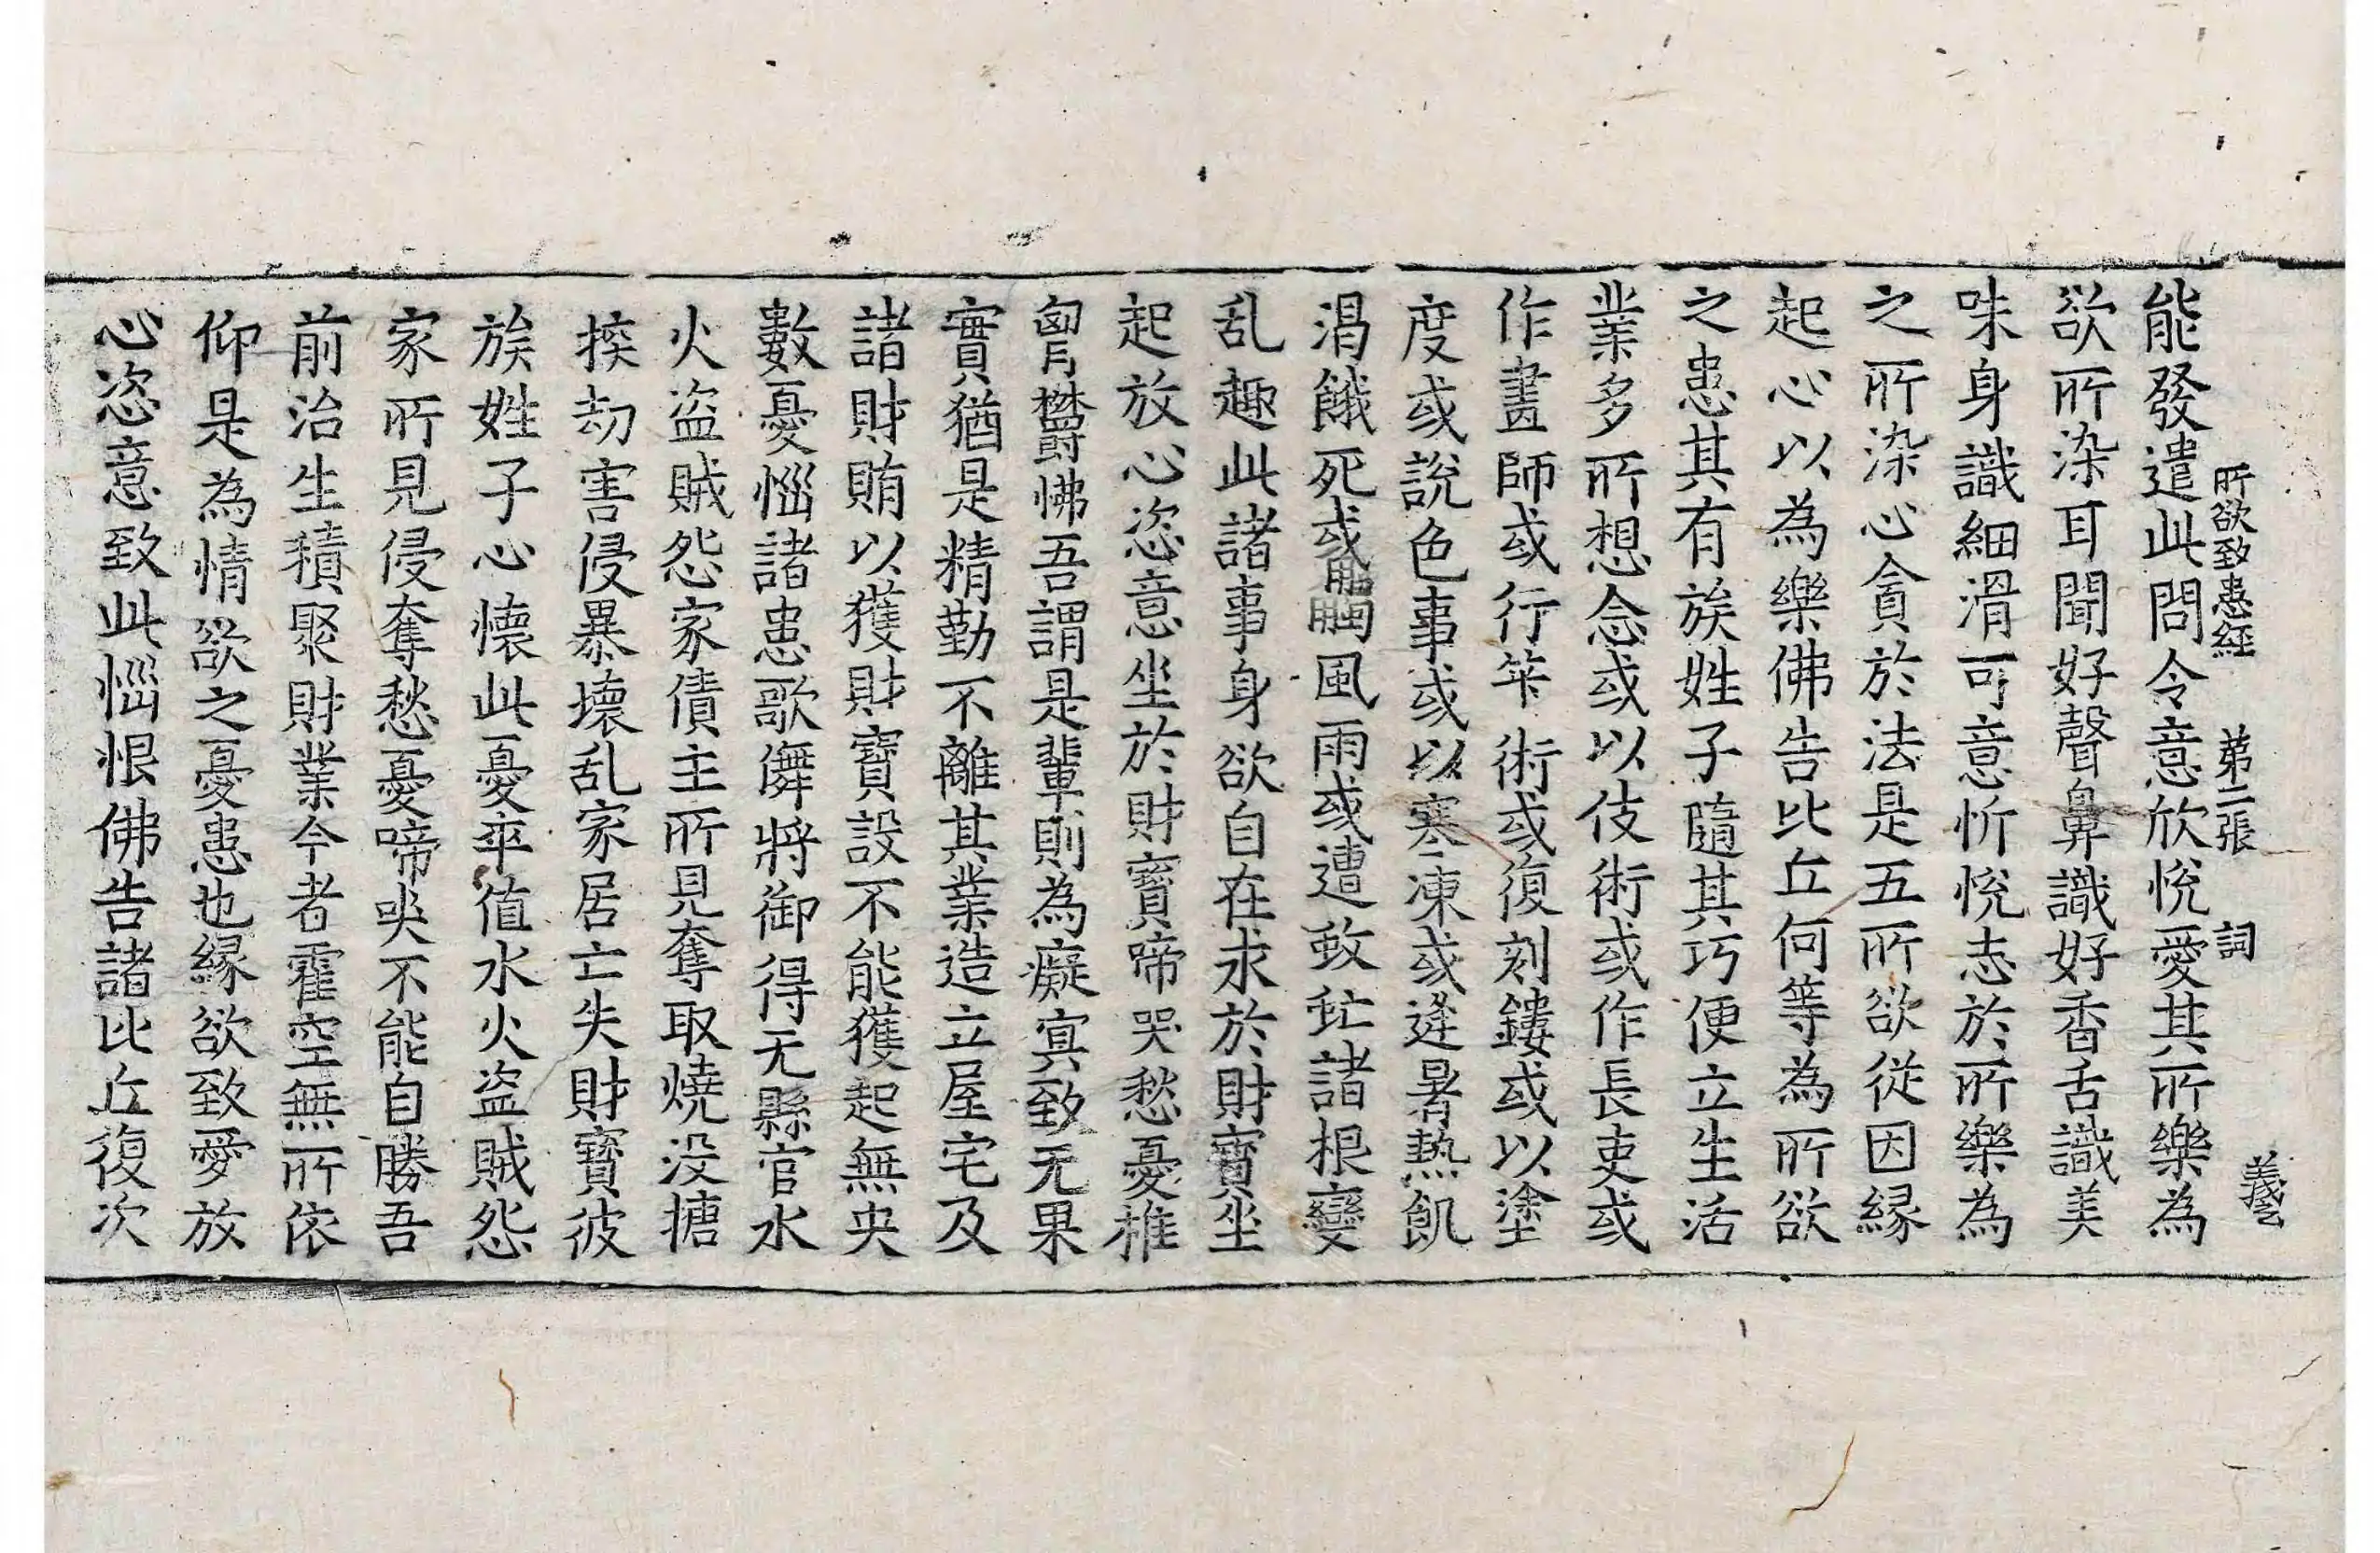 所欲致患經 第二張 詞 義
能發遣此問令意欣悅愛其所樂為
欲所染耳聞好聲鼻識好香舌識美
味身識細滑可意忻悅志於所樂為
之所染心貪於法是五所欲從因緣
起心以為樂佛告比丘何等為所欲
之患其有族姓子隨其巧便立生活
業多所想念或以伎術或作長吏或
作畫師或行筭術或復刻鏤或以塗
度或說色事或以寒凍或逢暑熱飢
渴餓死或觸風雨或遭蚊虻諸根變
乱趣此諸事身欲自在求於財寶坐
起放心恣意坐於財寶啼哭愁憂椎
匈鬱怫吾謂是輩則為癡冥致无果
實猶是精勤不離其業造立屋宅及
諸財賄以獲財寶設不能獲起無央
數憂惱諸患歌儛將御得无縣官水
火盜賊怨家債主所見奪取燒沒搪
揬劫害侵暴壞乱家居亡失財寶彼
族姓子心懷此憂卒值水火盜賊怨
家所見侵奪愁憂啼哭不能自勝吾
前治生積聚財業今者霍空無所依
仰是為情欲之憂患也緣欲致愛放
心恣意致此惱恨佛告諸比丘復次